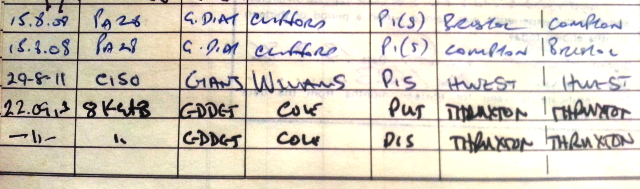 15.8.08 PA28 G.DIAT CLIFFORD P1(S) BRISTOL COMPTON
15.8.08 PA28 G.DIAT CLIFFORD P1(S) COMPTON BRISTOL
29-8-11 C150 P1S HWEST HWEST
22.09.13 COLE PUT THRUXTON THRUXTON
-11- 11 COLE P1S THRUXTON THRUXTON